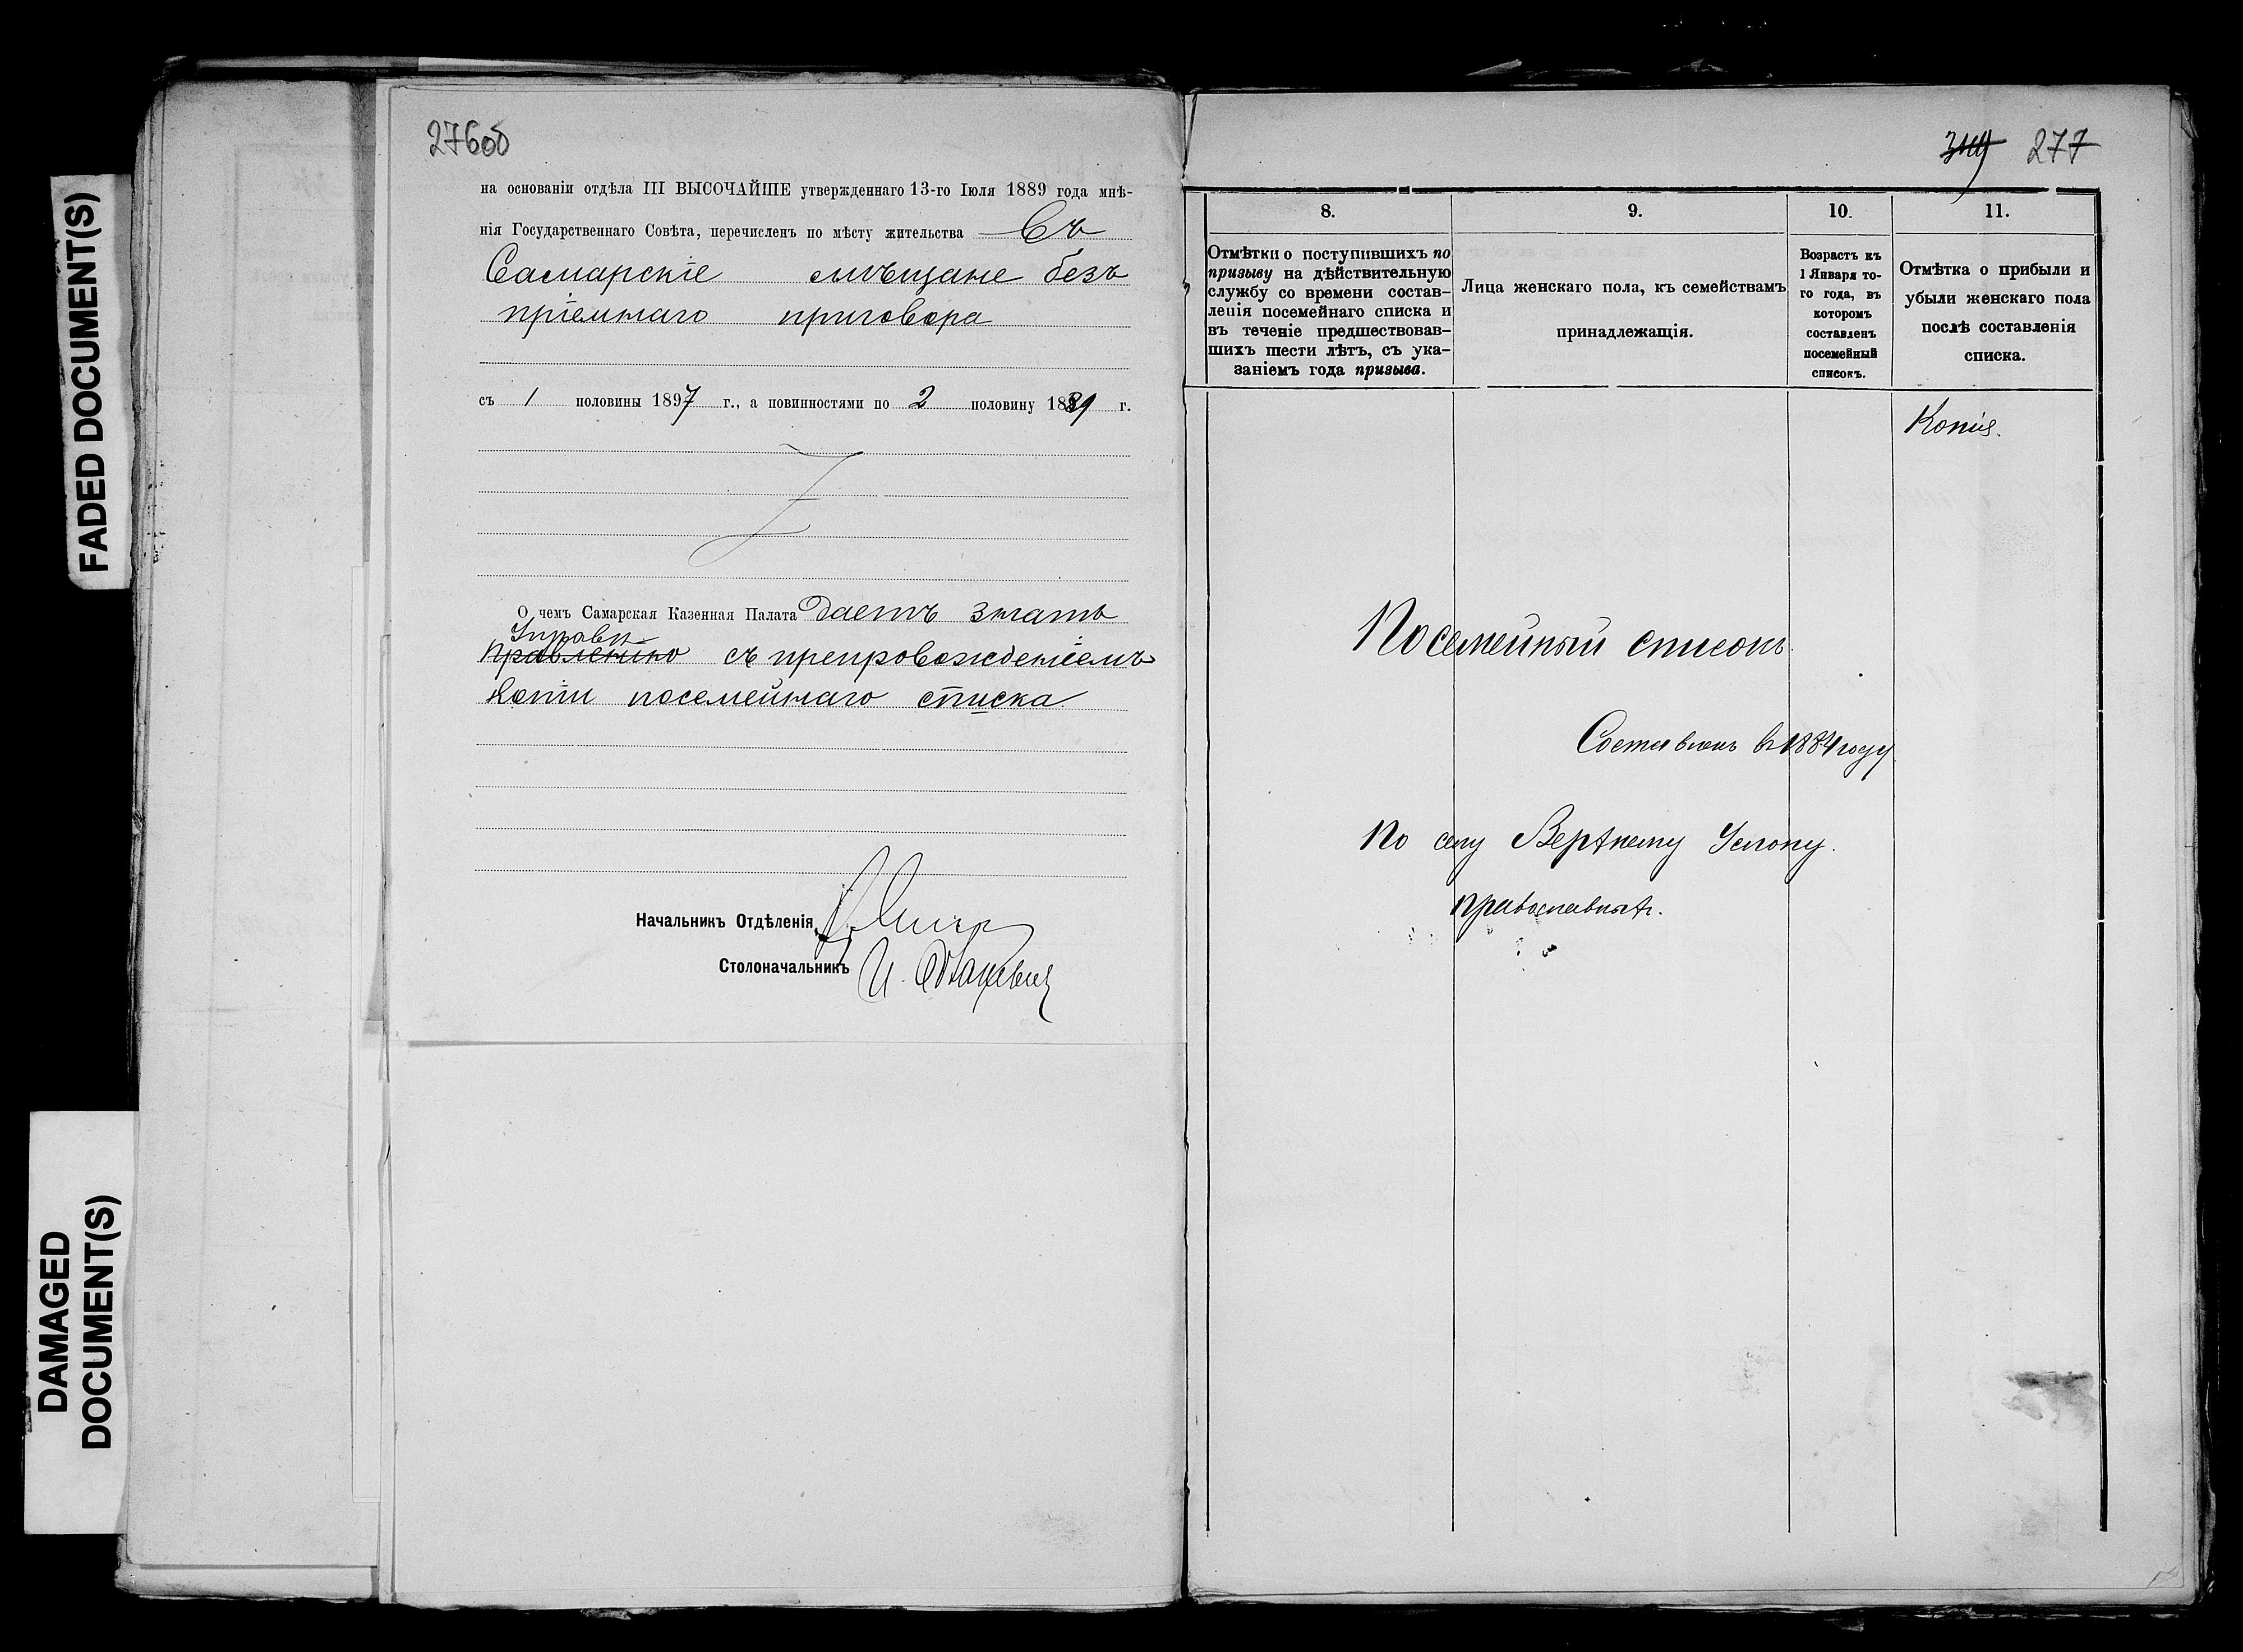 FADED DOCUMENT(S)
DAMAGED
DOCUMENT(S)
276об
на основаніи отдѣла III ВЫСОЧАЙШЕ утвержденнаго 13-го Іюля 1889 года мнѣ-
нія Государственнаго Совѣта, перечисленъ по мѣсту жительства Въ
Самарскіе мѣщане безъ
пріемнаго приговора
съ 1 половины 1897 г., а повинностями по 2 половину 1889 г.
О чемъ Самарская Казенная Палата даетъ знать
Управѣ
Правленію съ препровожденіемъ
копіи посемейнаго списка
Начальникъ Отдѣленія
Столоначальникъ И.
277
8.
9.
10.
11.
Отмѣтки о поступившихъ по
призыву на дѣйствительную
службу со времени состав-
ленія посемейнаго списка и
въ теченіе предшествовав-
шихъ шести лѣтъ, съ ука-
заніемъ года призыва.
Лица женскаго пола, къ семействамъ
принадлежащія.
Возрастъ къ
1 Января то-
го года, въ
которомъ
составленъ
посемейный
списокъ.
Отмѣтка о прибыли и
убыли женскаго пола
послѣ составленія
списка.
Копія.
Посемейный списокъ.
Составленъ въ 1884 году
По селу Верхнему Услону.
православныхъ.